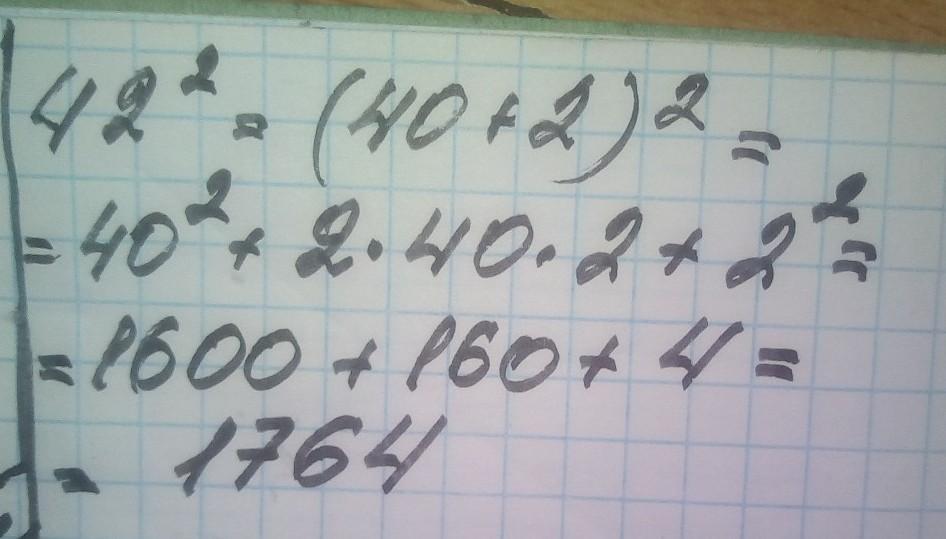 42² = (40+2)² =
= 40² + 2·40·2 + 2² =
= 1600 + 160 + 4 =
= 1764